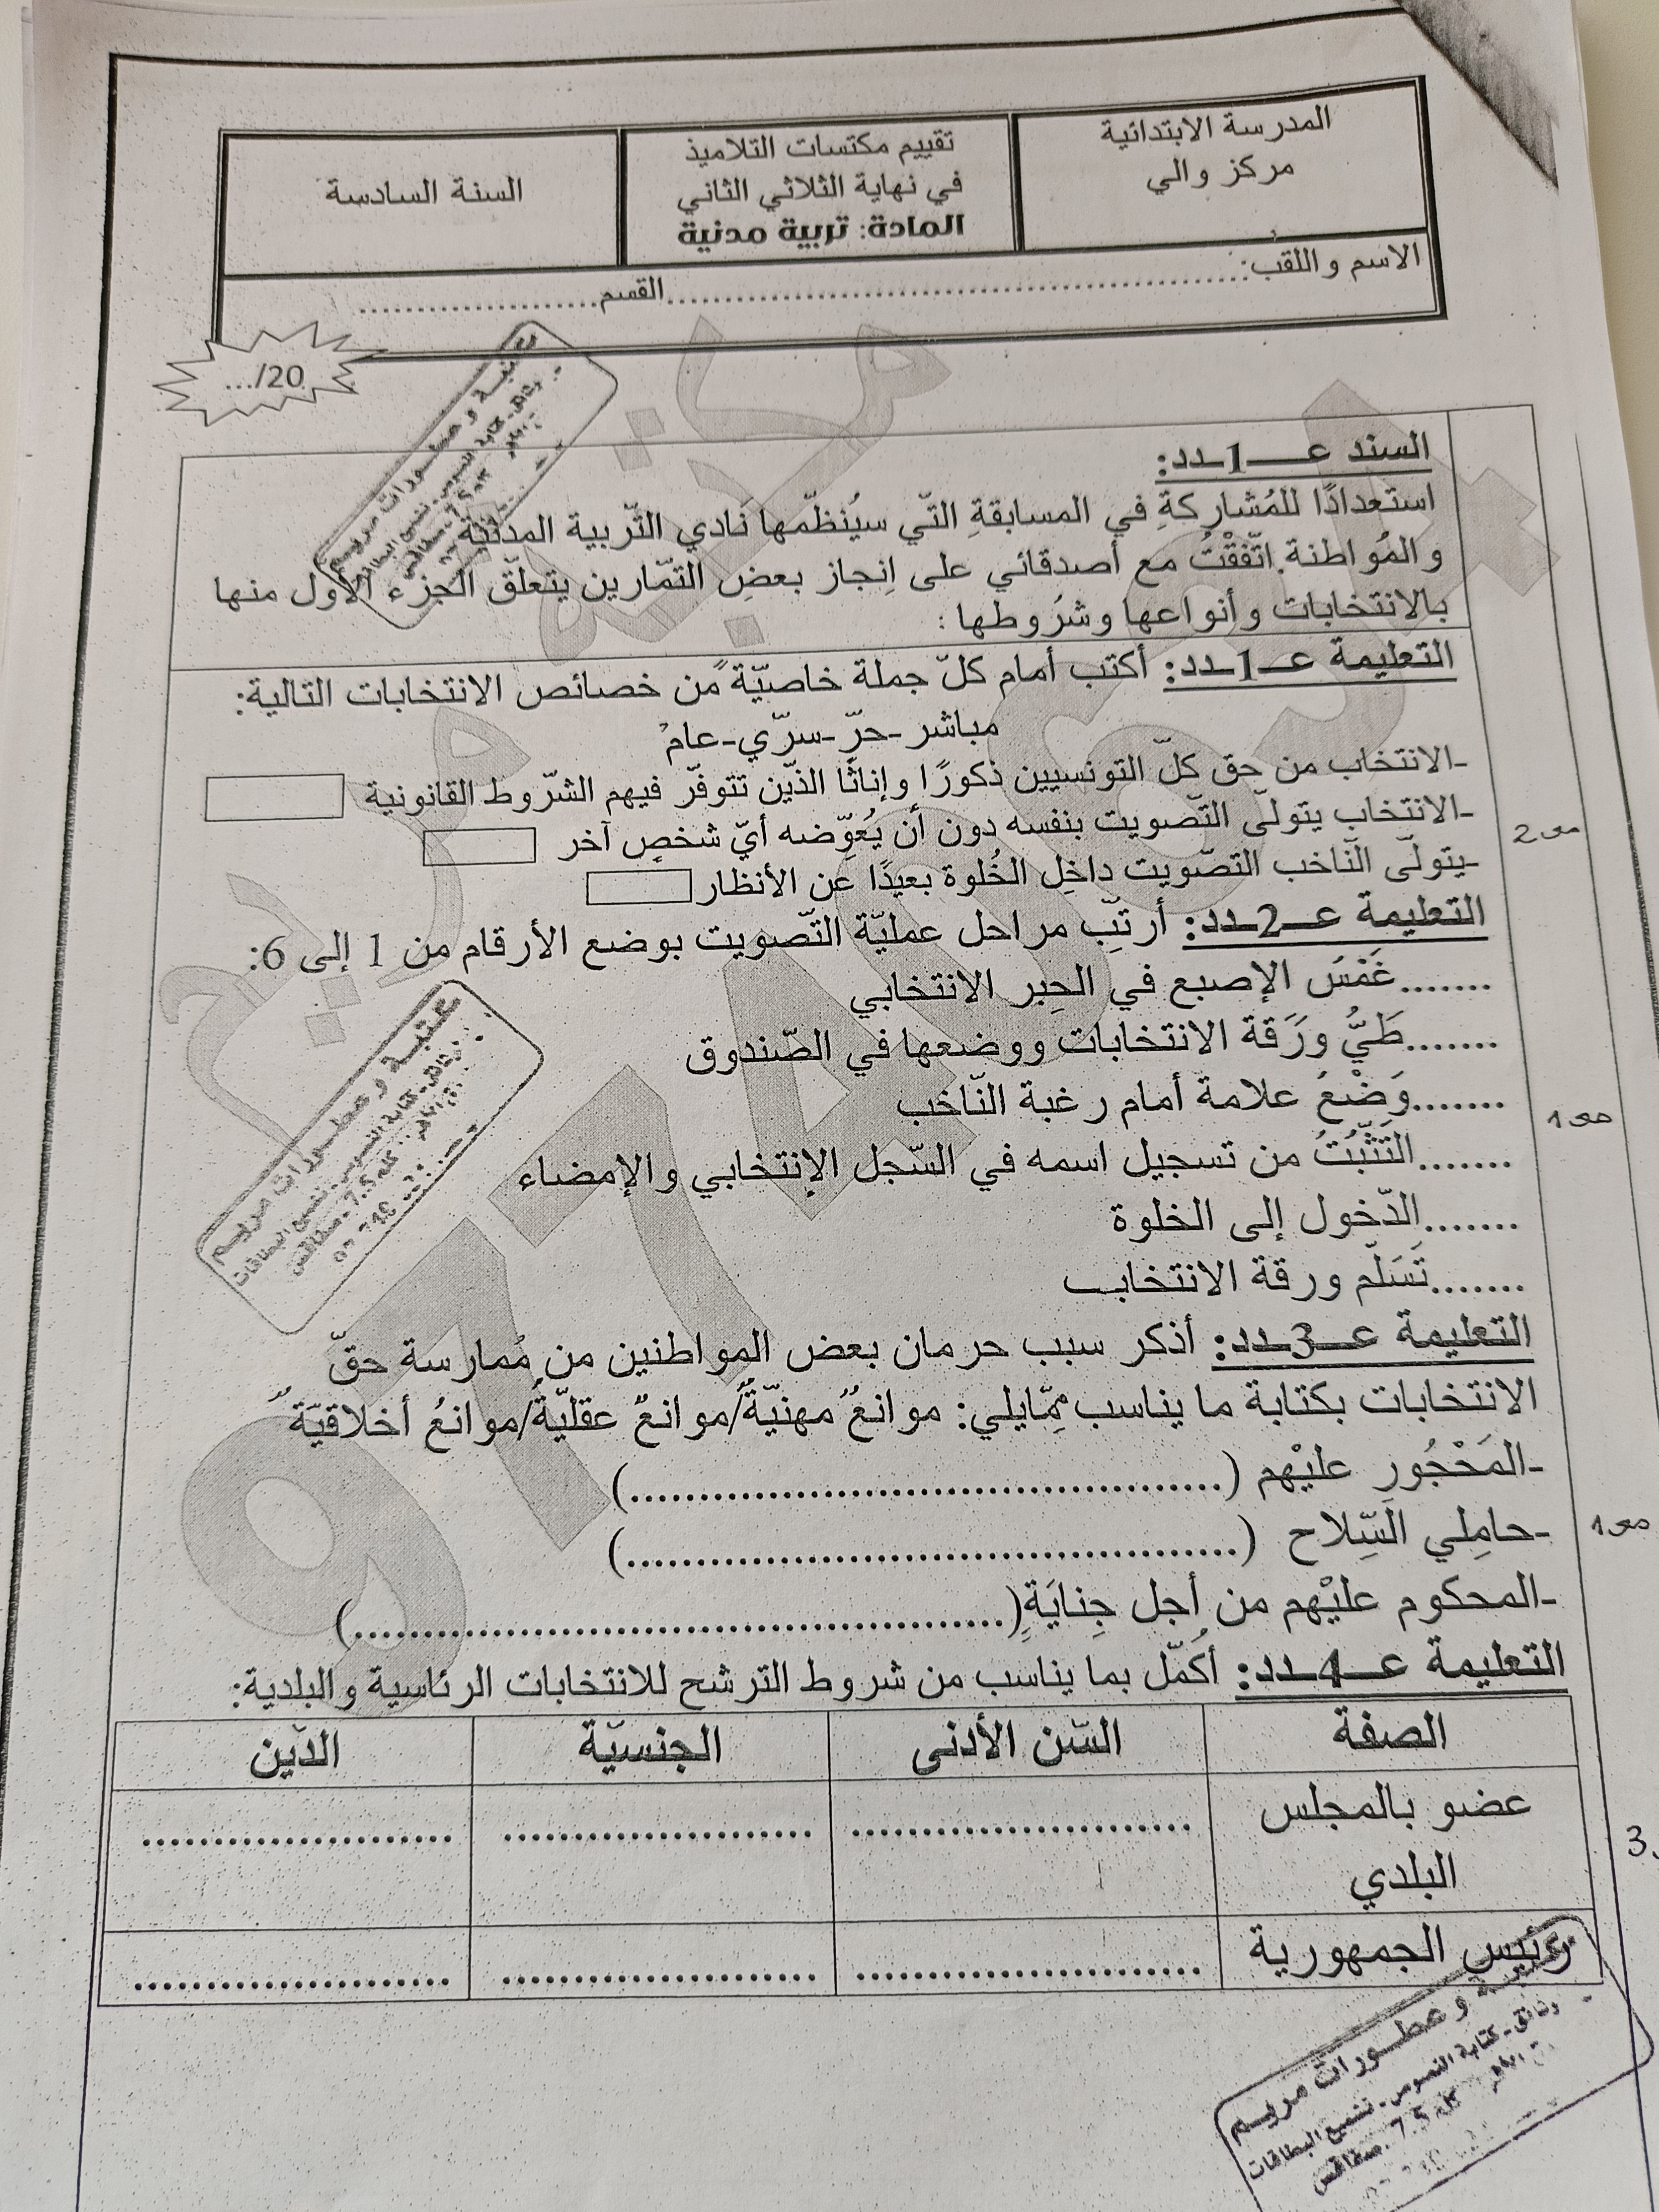 المدرسة الابتدائية
مركز والي
تقييم مكتسبات التلاميذ
في نهاية الثلاثي الثاني
المادة: تربية مدنية
السنة السادسة
الاسم واللقب:..........................................................القسم......................
.../20
السند عـــ1ـدد:
استعدادًا للمُشاركةِ في المسابقةِ التّي سيُنظّمها نادي التّربية المدنيّة
والمُواطنة.اتّفقْتُ مع أصدقائي على اِنجاز بعضِ التمّارين يتعلّق الجزء الأول منها
بالانتخابات وأنواعها وشرُوطها :
التعليمة عـــ1ـدد: أكتب أمام كلّ جملة خاصيّة من خصائص الانتخابات التالية:
مباشر-حرّ-سرّي-عام
-الانتخاب من حق كلّ التونسيين ذكورًا وإناثًا الذّين تتوفّر فيهم الشّروط القانونية
-الانتخاب يتولّى التّصويت بنفسه دون أن يُعوّضه أيّ شخصٍ آخر
-يتولّى النّاخب التصّويت داخِل الخُلوة بعيدًا عن الأنظار
التعليمة عـــ2ـدد: أرتّب مراحل عمليّة التّصويت بوضع الأرقام من 1 إلى 6:
.......غَمْسَ الإصبع في الحِبر الانتخابي
.......طَيُّ ورَقة الانتخابات ووضعها في الصّندوق
.......وَضْعُ علامة أمام رغبة النّاخب
.......التَثّبُتُ من تسجيل اسمه في السّجل الإنتخابي والإمضاء
.......الدّخول إلى الخلوة
.......تَسَلّم ورقة الانتخاب
التعليمة عـــ3ـدد: أذكر سبب حرمان بعض المواطنين من مُمارسة حقّ
الانتخابات بكتابة ما يناسب ممّايلي: موانعُ مهنيّةٌ/موانعُ عقليّةٌ/موانعُ أخلاقيّة
-المَحْجُورِ عليْهم (..........................................)
-حامِلي السّلاح (..........................................)
-المحكوم عليْهم من أجل جِنايَةٍ(..............................................)
التعليمة عـــ4ـدد: أكمّل بما يناسب من شروط الترشح للانتخابات الرئاسية والبلدية:
الصفة السّن الأدنى الجنسيّة الدّين
عضو بالمجلس البلدي ........................ ...................... ......................
رئيس الجمهورية ........................ ...................... ......................